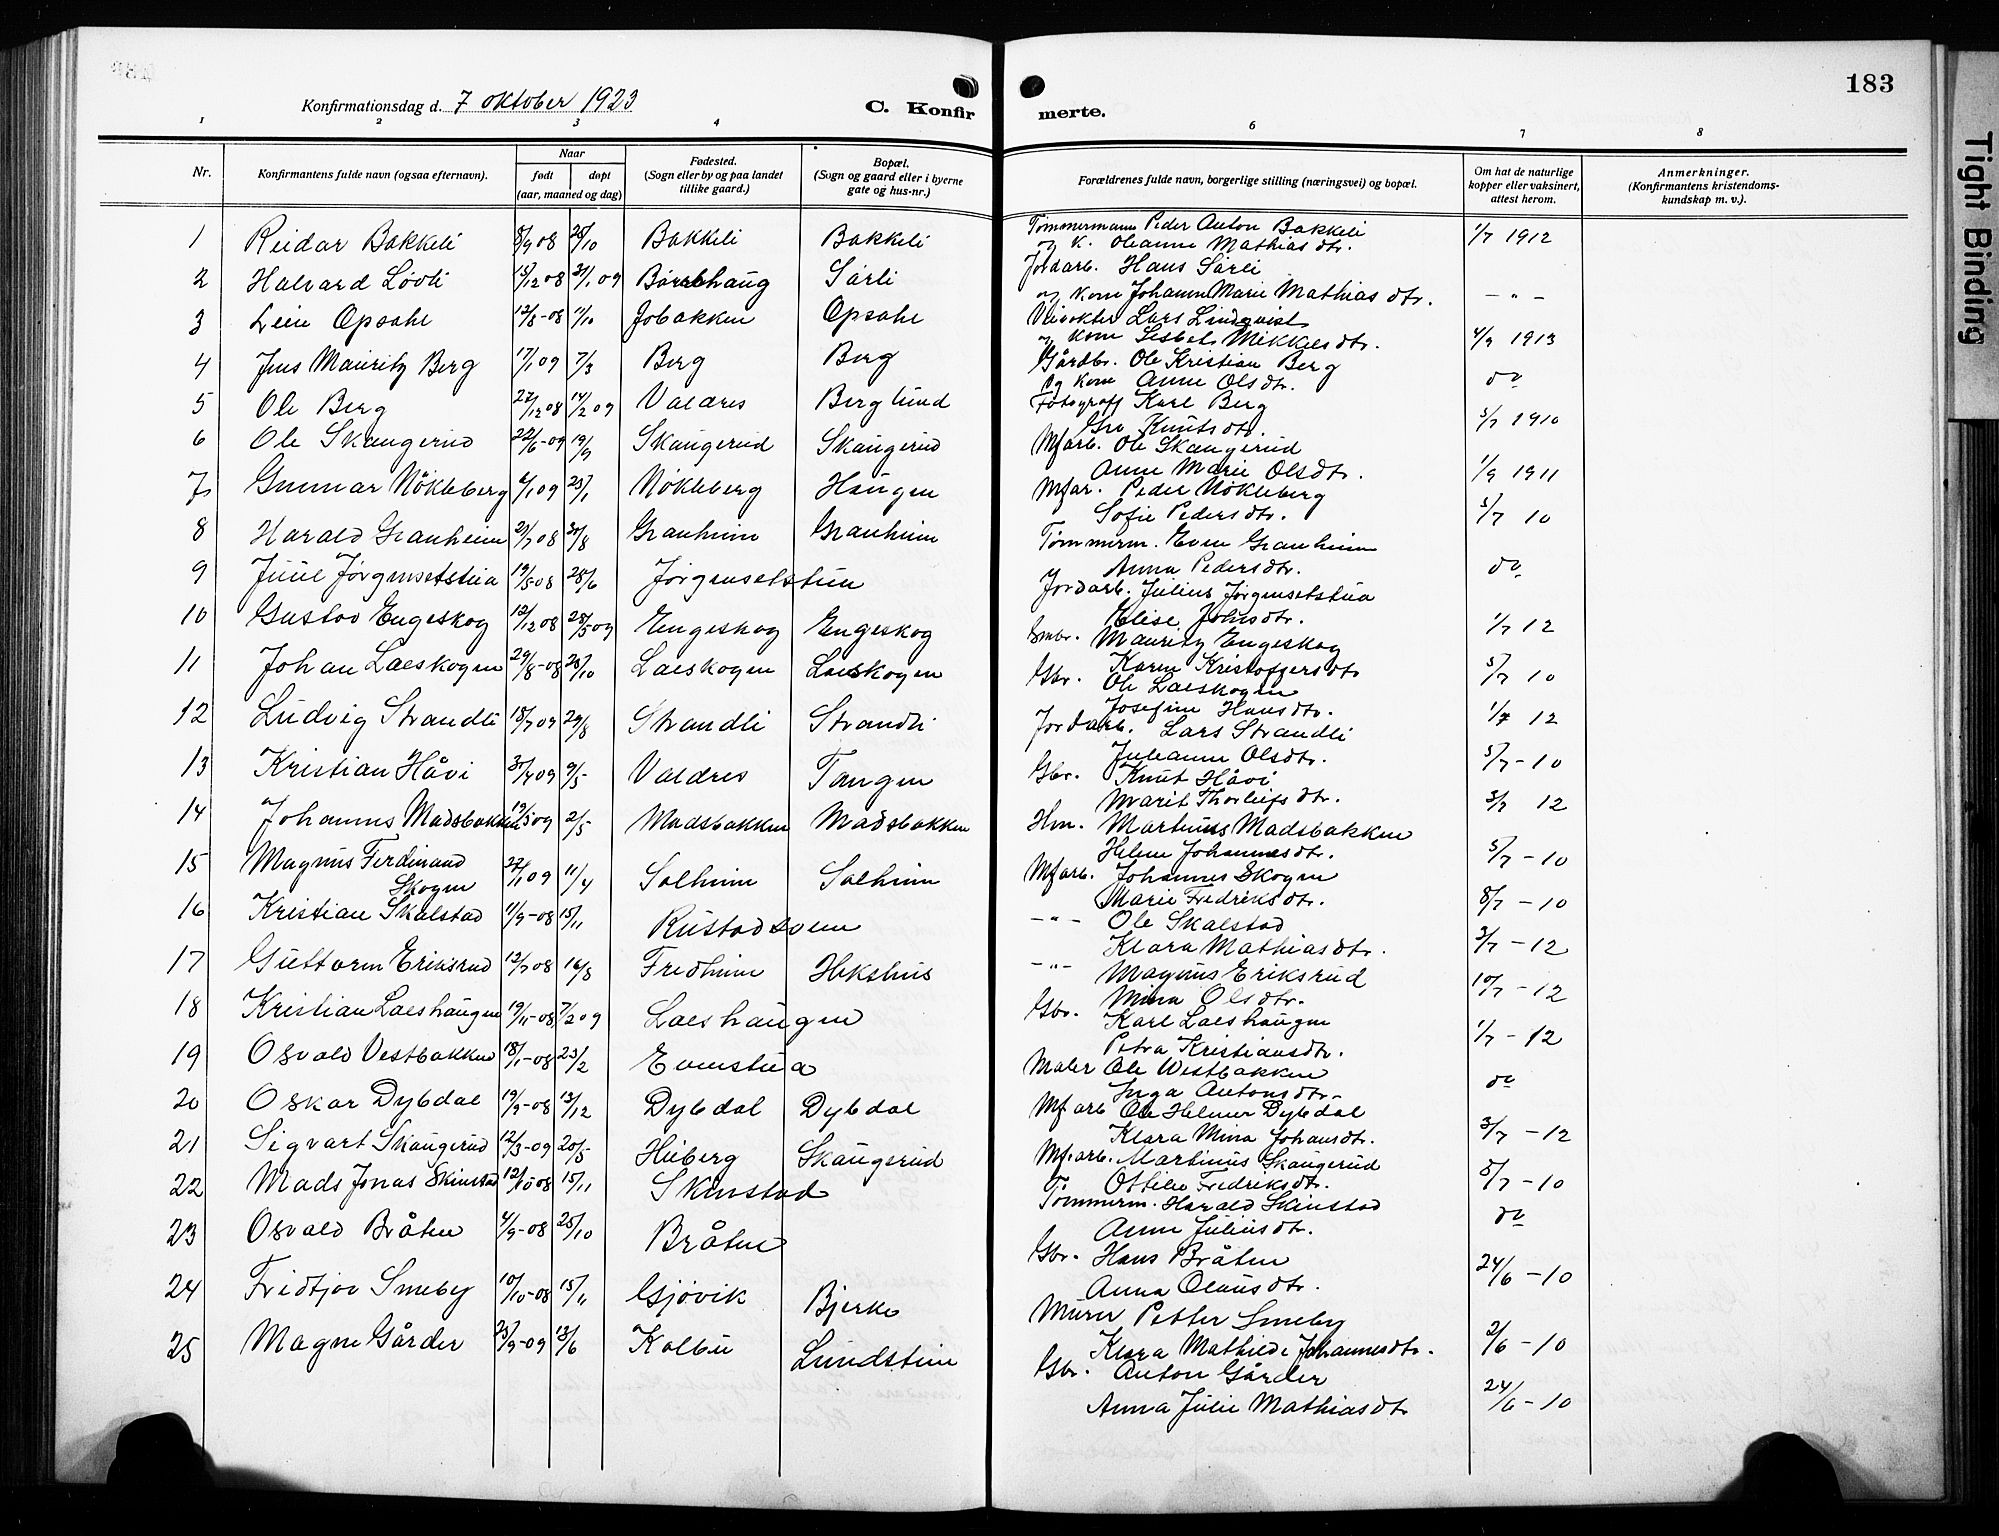 183
Konfirmationsdag d. 7 oktober 1923
C. Konfirmerte.
1 2 3 4 5 6 7 8
Nr. Konfirmantens fulde navn (ogsaa efternavn). Naar født døpt (aar, maaned og dag) Fødested. (Sogn eller by og paa landet tillike gaard.) Bopæl. (Sogn og gaard eller i byerne gate og hus-nr.) Forældrenes fulde navn, borgerlige stilling (næringsvei) og bopæl. Om hat de naturlige kopper eller vaksinert, attest herom. Anmerkninger. (Konfirmantens kristendoms-kundskap m. v.).
1 Reidar Bakkeli 8/9 08 25/10 Bakkeli Bakkeli Tømmermann Peder Anton Bakkeli 1/7 1912
og k. Oleanne Mathiasdtr.
2 Halvard Lövli 15/12 08 31/1 09 Sørli Jordarb. Hans Sørli
og kone Johanne Marie Mathiasdtr. – " –
3 Opsahl 12/8-08 11/10 Jobakken Opsahl Lars Lindqvist
og kone Lisbet Mikkelsdtr. 4/9 1913
4 Jens Mauritz Berg 17/1 09 7/3 Berg Berg Gårdbr. Ole Kristian Berg
og kone Anne Olsdtr. do
5 Ole Berg 27/12 08 14/2 09 Valdres Berglund Fotograff Karl Berg
Gro Knutsdtr. 5/7 1910
6 Ole Skaugerud 22/6-09 19/9 Skaugerud Skaugerud Mfarb. Ole Skaugerud
Anne Marie Olsdtr. 1/9 1911
7 Gunnar Nökleberg 6/1 09 25/1 Nökleberg Haugen Mfar. Peder Nökleberg
Sofie Pedersdtr. 5/7 10
8 Harald Granheim 29/7 08 30/8 Granheim Granheim Tømmerm. Even Granheim
Anna Pedersdtr. do
9 Juul Jörgensetstua 19/5 08 28/6 Jörgensetstuen Jordarb. Julius Jörgensetstua
Elise Johsdtr. 1/7 12
10 Gustav Engeskog 12/12 08 28/5 09 Engeskog Engeskog Smbr. Mauritz Engeskog
Karen Kristoffersdtr 5/7 10
11 Johan Laeskogen 29/8-08 25/10 Laeskogen Laeskogen Gbr. Ole Laeskogen
Josefine Hansdtr. 1/7 12
12 Ludvig Strandli 18/7 09 29/8 Strandli Strandli Jordarb. Lars Strandli
Juleanne Olsdtr. 5/7-10
13 Kristian Håvi 9/5 Valdres Tangen Gbr. Knut Håvi
Marit Thorleifsdtr. 3/7 12
14 Johannes Madsbakken 2/5 Madsbakken Madsbakken Hm. Martinus Madsbakken
Helene Johannesdtr. 5/7-10
15 Magnus Ferdinand 22/1 09 11/4 Solheim Solheim Mfarb. Johannes Skogen
Skogen Marie Fredriksdtr. 8/7-10
16 Kristian Skalstad 11/9-08 15/11 Rustadsveen – " – Ole Skalstad
Klara Mathiasdtr. 3/7-12
17 Guttorm Eriksrud 12/7 08 16/8 Fredheim Hekshus – " – Magnus Eriksrud
Mina Olsdtr. 10/7-12
18 Kristian Laeshaugen 19/11-08 7/2 09 Laeshaugen Gbr. Karl Laeshaugen
Petra Kristiansdtr. 1/7-12
19 Osvald Vestbakken 18/1-08 23/2 Evenstua Maler Ole Westbakken
Inga Antonsdtr. do
20 Oskar Dybdal 19/9-08 13/12 Dybdal Dybdal Mfarb Ole Helmer Dybdal
Klara Mina Johansdtr. 3/7-12
21 Sigvart Skaugerud 12/3-09 20/5 Huberg Skaugerud Mfarb. Martinus Skaugerud
Ottilie Fredriksdtr. 5/7-10
22 Mads Jonas Skinstad 12/10 08 15/11 Skinstad Tömmerm. Harald Skinstad
Anne Juliusdtr. do
23 Osvald Bråten 4/9-08 25/10 Bråten Gbr. Hans Bråten
Anna Olausdtr. 24/6-10
24 Fridtjov Smeby 10/10-08 15/11 Gjövik Bjerke Murer Petter Smeby
Klara Mathilde Johannesdtr. 2/6-10
25 Magne Gårder 13/6 Kolbu Lundstein Gbr. Anton Gårder
Anna Julie Mathiasdtr 24/6-10
Tight Binding